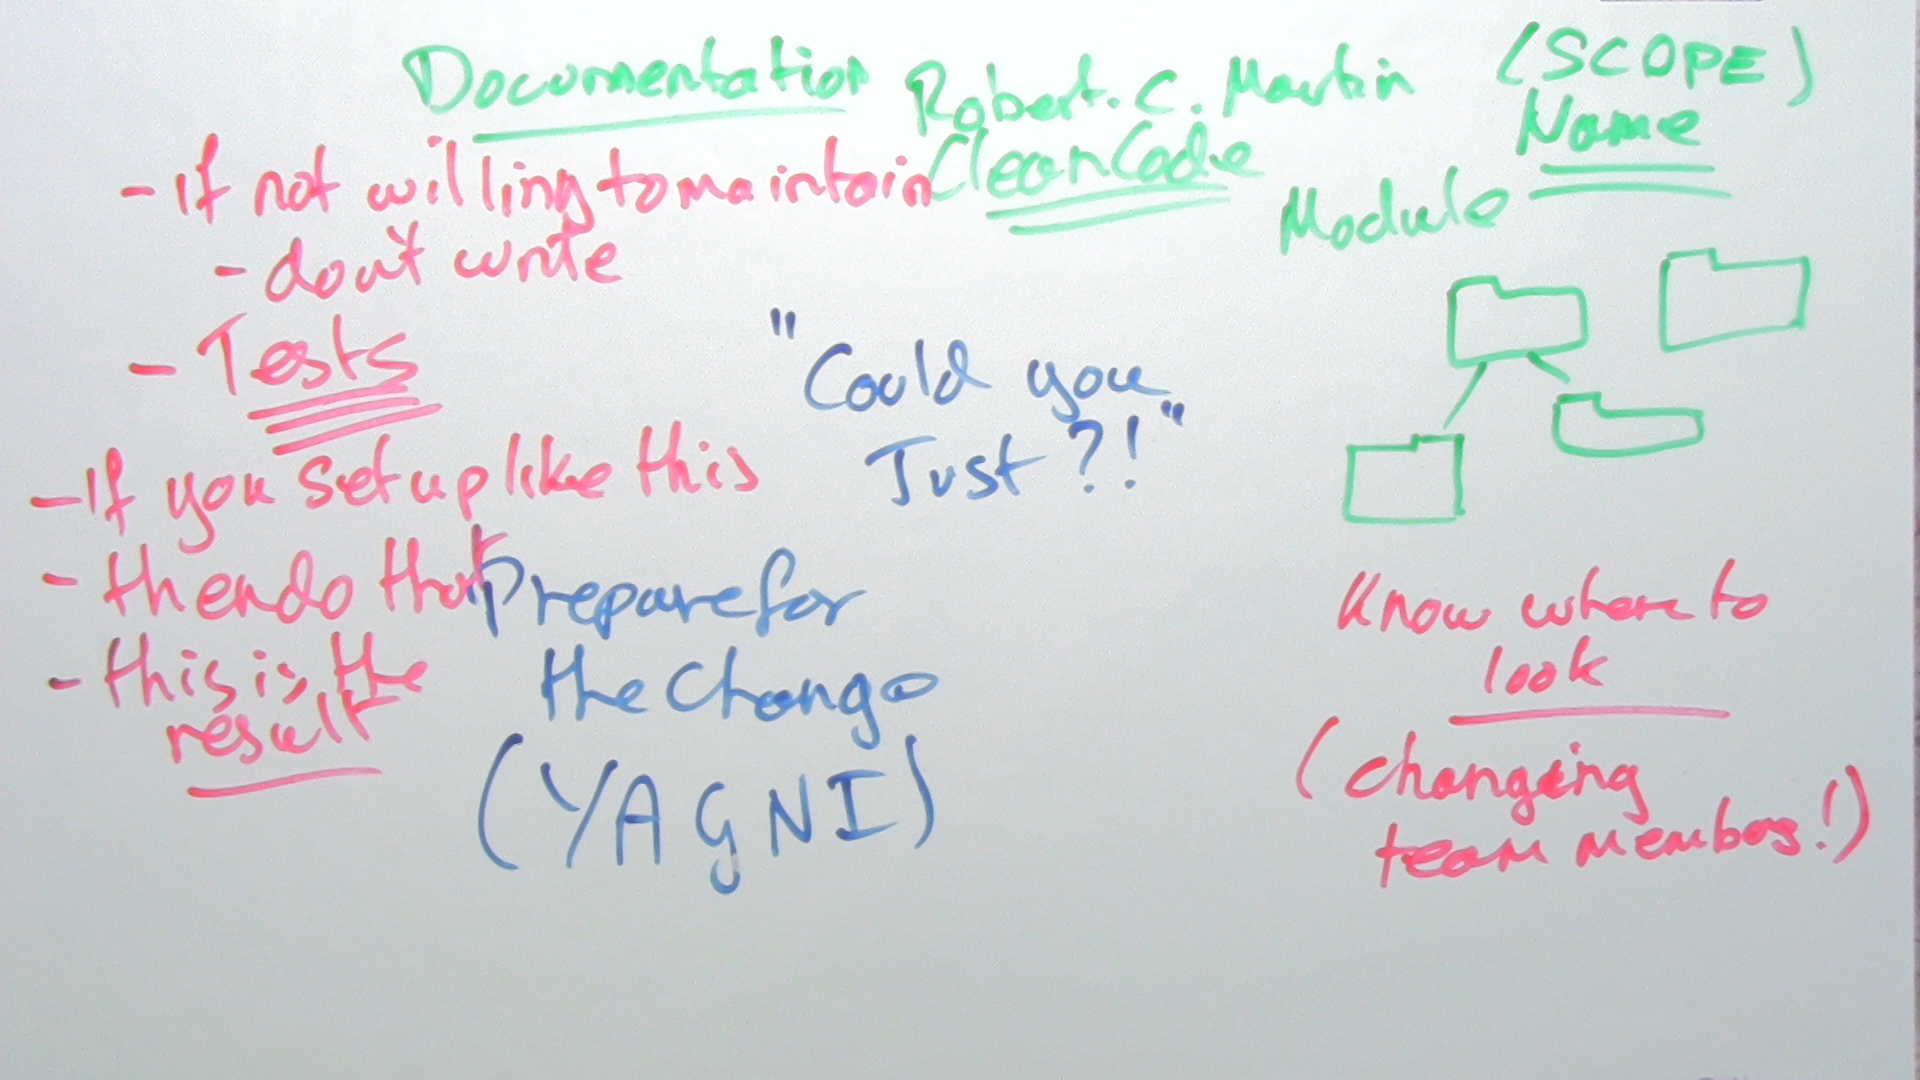 Documentation
- if not willing to maintain
- don't write
- Tests
- If you set up like this
- then do that
- this is the
result
Robert. C. Martin
Clean Code
"Could you
Just ?!"
Prepare for
the change
(YAGNI)
(SCOPE)
Name
Module
Know where to
look
(changing
team members!)